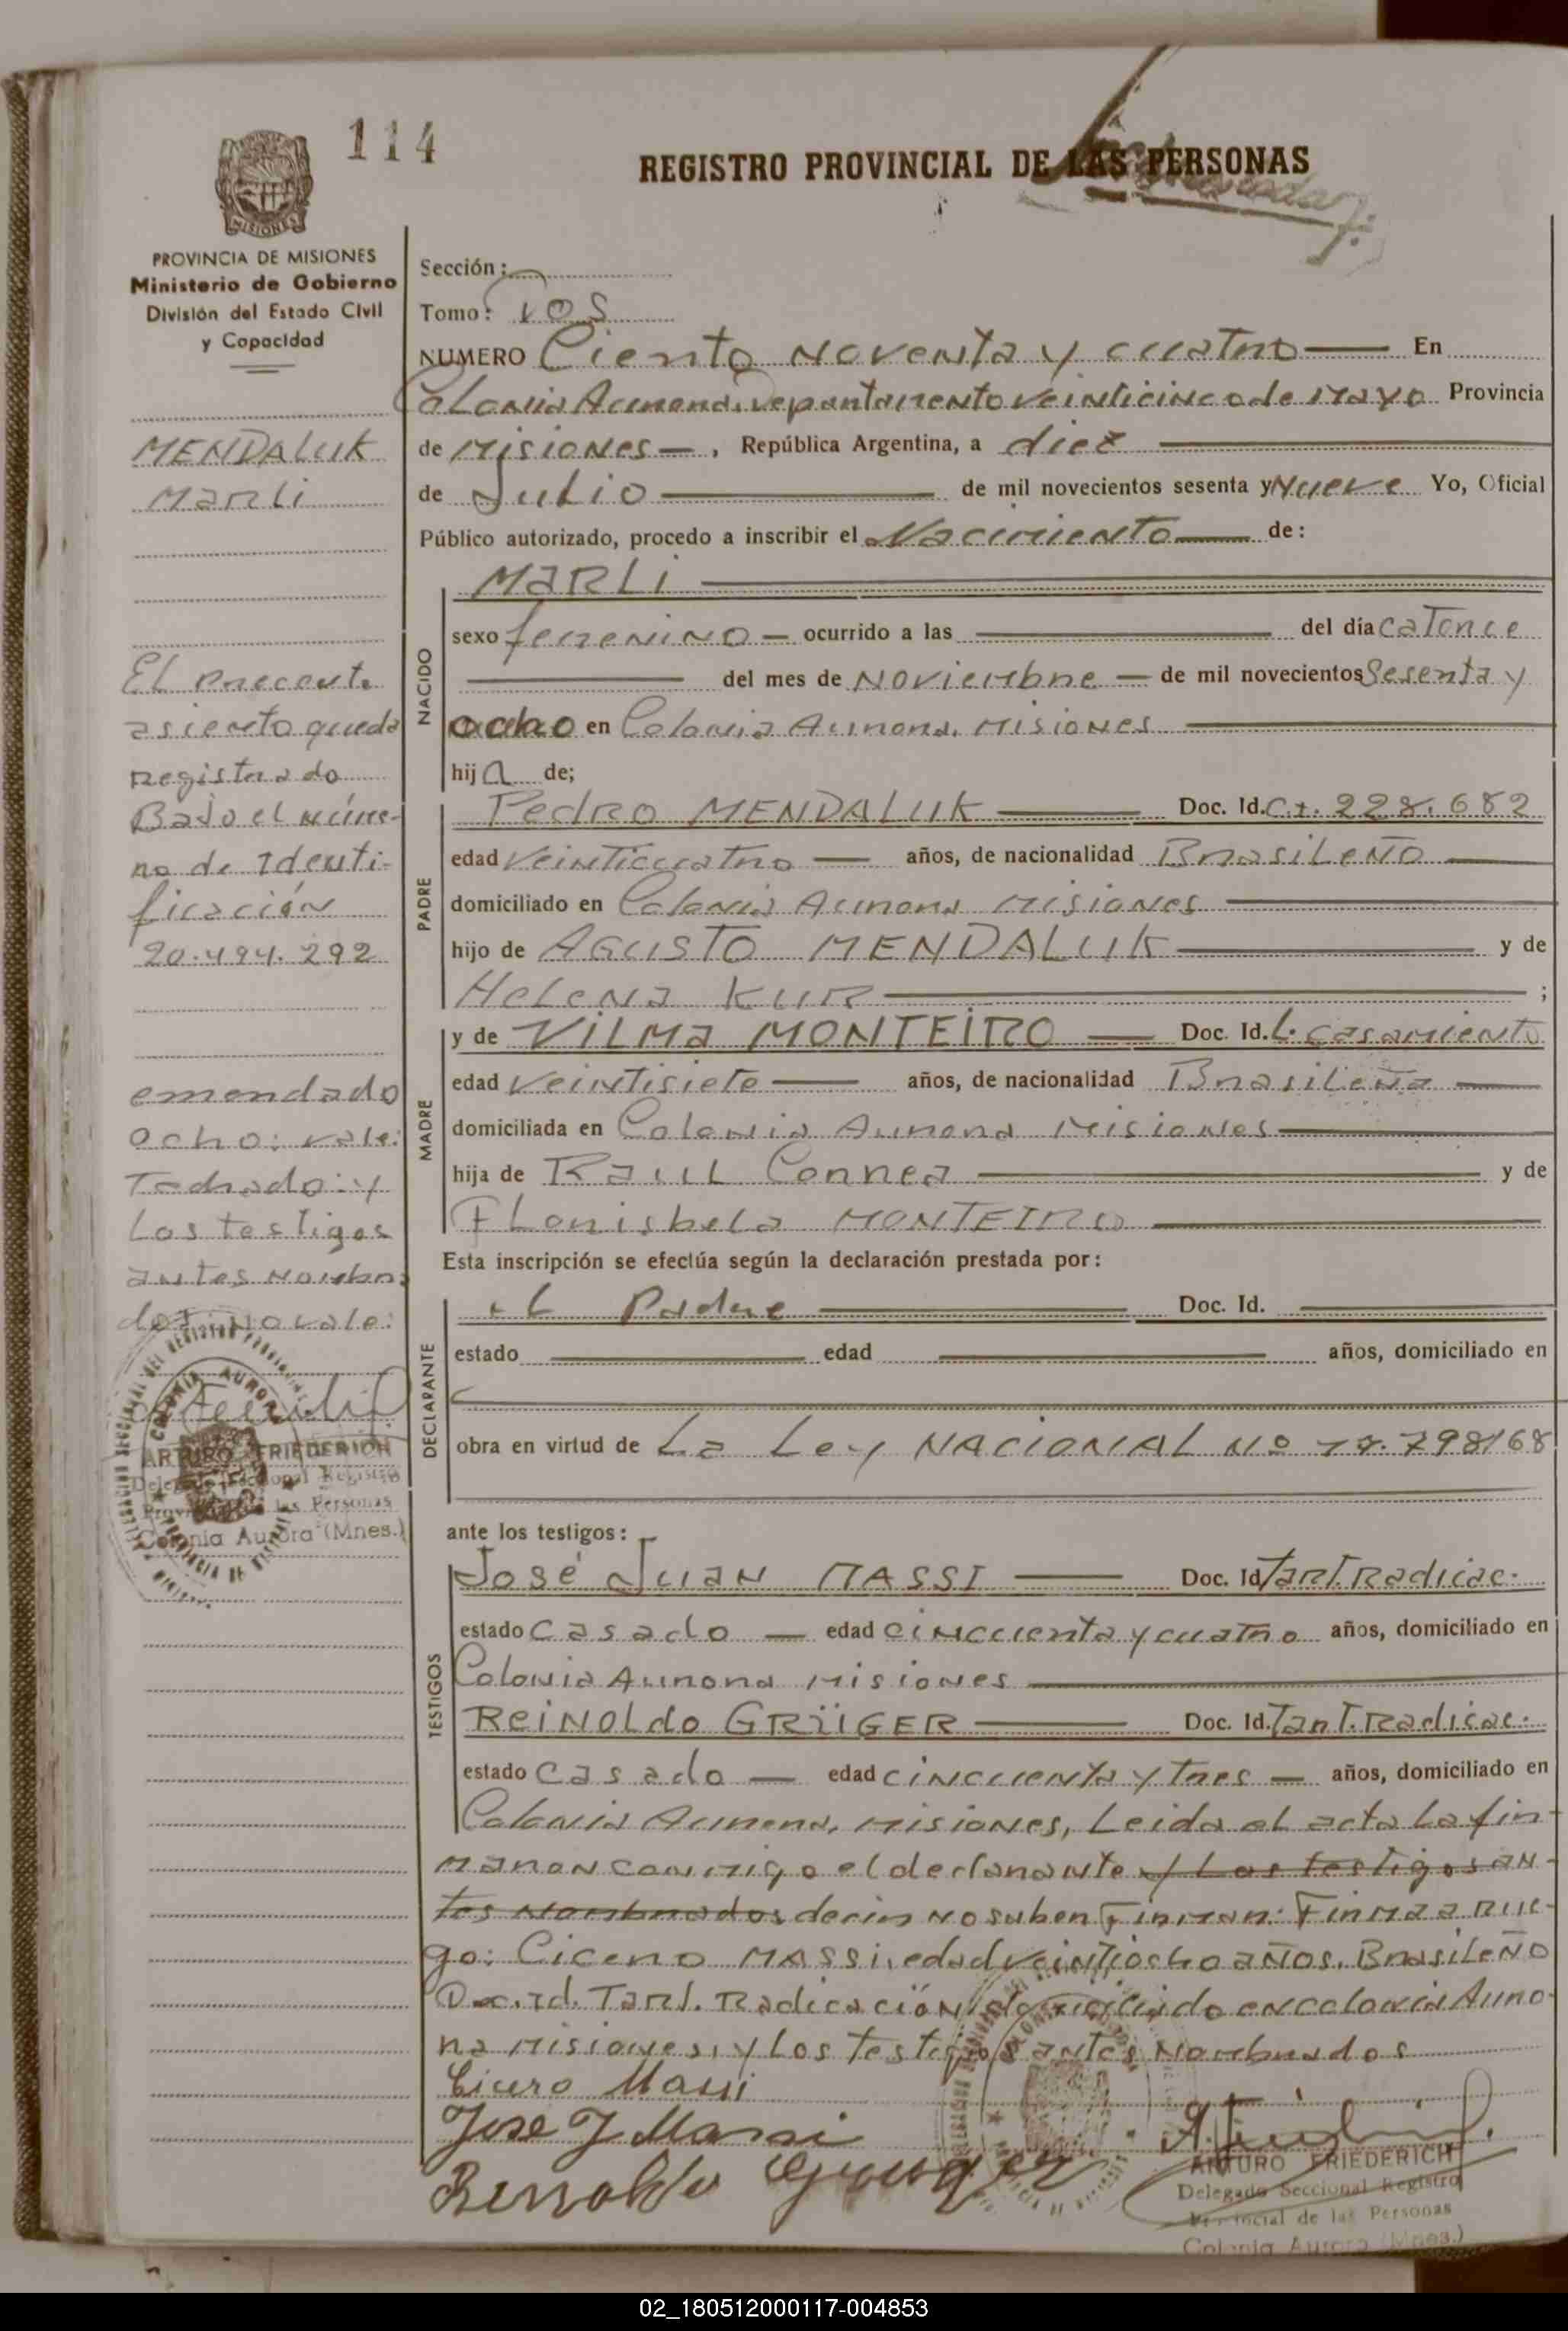 114
REGISTRO PROVINCIAL DE LAS PERSONAS
MISIONES
PROVINCIA DE MISIONES
Ministerio de Gobierno
División del Estado Civil
y Capacidad
MENDALUK
Marli
El precente
asiento queda
registrado
Bajo el núme-
ro de Identi-
ficación
20.494.292
emendado
ocho: vale:
Tachado: y
Los testigos
antes nombra
dos: no vale:
ARTURO FRIEDERICH
Delegado Seccional Registro
Provincial de las Personas
Colonia Aurora (Mnes.)
Sección:
Tomo: Dos
NUMERO Ciento noventa y cuatro En
Colonia Aurora, Departamento veinticinco de Mayo Provincia
de Misiones, República Argentina, a diez
de Julio de mil novecientos sesenta y Nueve Yo, Oficial
Público autorizado, procedo a inscribir el Nacimiento de:
NACIDO
MARLI
sexo femenino ocurrido a las del día catorce
del mes de Noviembre de mil novecientos Sesenta y
ocho en Colonia Aurora, Misiones
hija de;
PADRE
Pedro MENDALUK Doc. Id. C.I. 228.682
edad veinticuatro años, de nacionalidad Brasileño
domiciliado en Colonia Aurora Misiones
hijo de AGUSTO MENDALUK y de
Helena KUR ;
MADRE
y de VILMA MONTEIRO Doc. Id. L. casamiento
edad veintisiete años, de nacionalidad Brasileña
domiciliada en Colonia Aurora Misiones
hija de Raul Correa y de
Florisbela MONTEIRO
Esta inscripción se efectúa según la declaración prestada por:
DECLARANTE
el Padre Doc. Id.
estado edad años, domiciliado en
obra en virtud de La Ley NACIONAL Nº 17.798/68
ante los testigos:
TESTIGOS
José Juan MASSI Doc. Id Tarj. Radicac.
estado Casado edad cincuenta y cuatro años, domiciliado en
Colonia Aurora Misiones
Reinoldo GRÜGER Doc. Id. Tarj. Radicac.
estado Casado edad cincuenta y tres años, domiciliado en
Colonia Aurora, Misiones, Leida el acta La fir-
maron conmigo el declarante y Los testigos an-
tes nombrados decir no saben Firman: Firma a rue-
go: Cicero MASSI, edad veintiocho años, Brasileño
Doc. Id. Tarj. Radicación, domiciliado en colonia Auro-
ra Misiones, y Los testigos antes nombrados
Cicero Massi
Jose J Massi
ARTURO FRIEDERICH
Delegado Seccional Registro
Provincial de las Personas
Colonia Aurora (Mnes.)
02_180512000117-004853